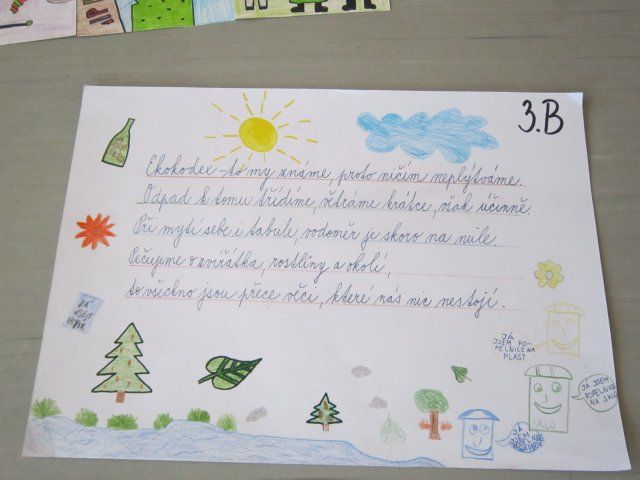 3.B
Ekokodex - to my známe, proto ničím neplýtváme.
Odpad k tomu třídíme, větráme krátce, však účinně.
Při mytí sebe i tabule, vodoměr je skoro na nule.
Pečujeme o zvířátka, rostliny a okolí,
to všechno jsou přece věci, které nás nic nestojí.
JÁ
JSEM PO-
PELNICE NA
PLAST
JÁ JSEM
POPELNICE
NA SKLO
SKLO
JÁ
JSEM